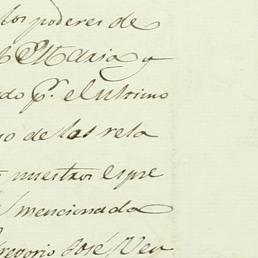 los poderes de
Maria y
do p.r el ultimo
o de las rela
nuestros espre
mencionada
regorio José Ver